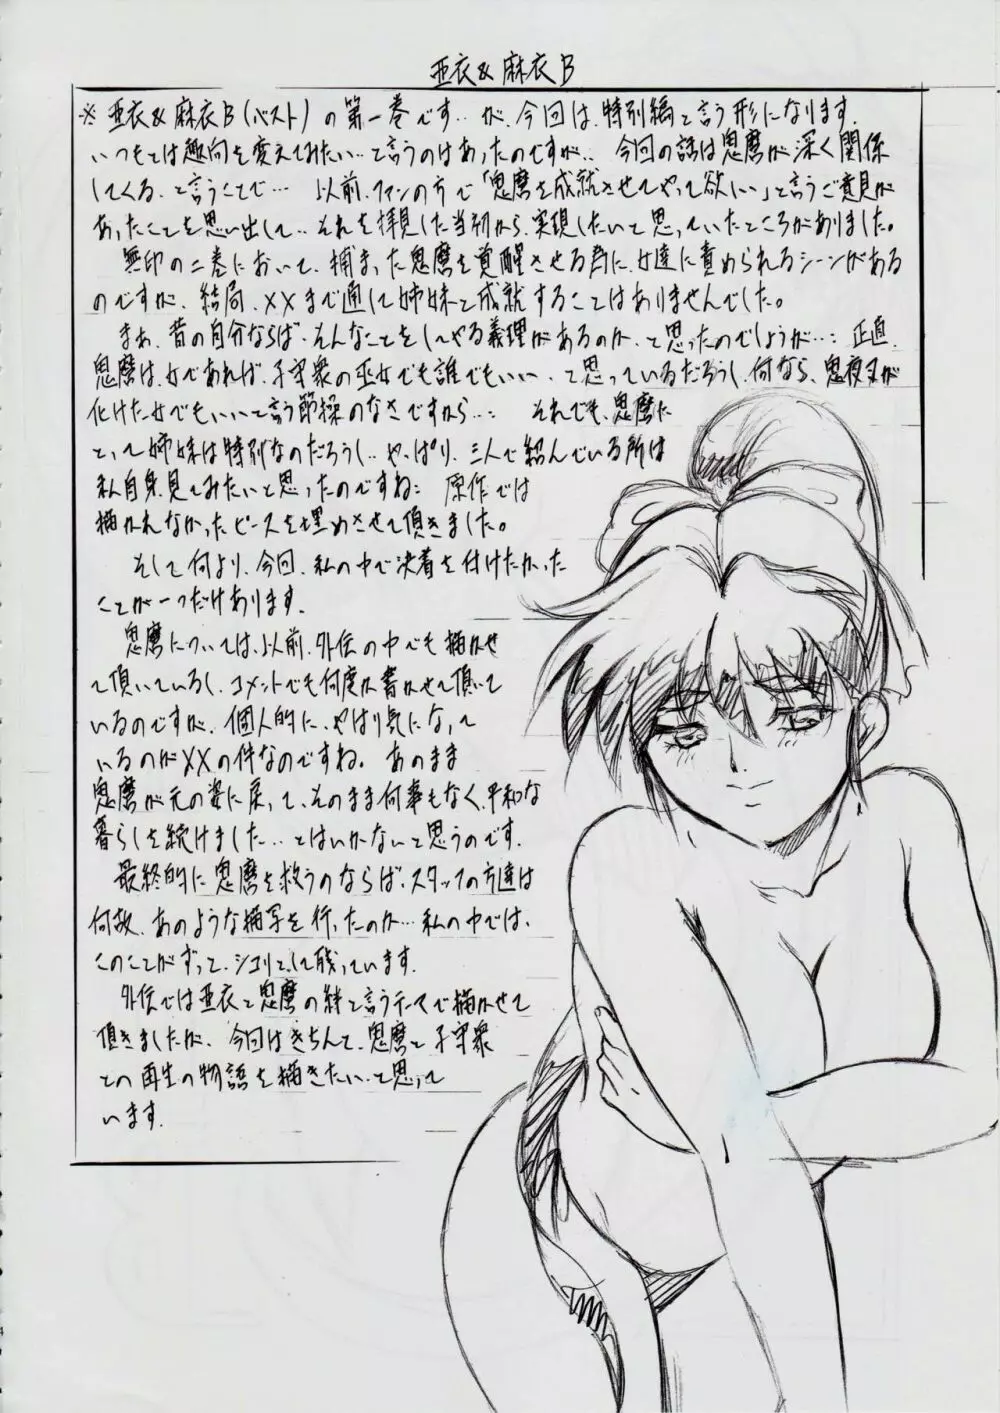 亜衣&麻衣B
※ 亜衣&麻衣B(ベスト)の第一巻です‥が、今回は、特別編と言う形になります。
いつもとは趣向を変えてみたい‥と言うのはあったのですが‥ 今回の話は鬼麿が深く関係
してくる、と言うことで… 以前、ファンの方で「鬼麿を成就させてやって欲しい」と言うご意見が
あったことを思い出して‥それを拝見した当初から、実現したいと思っていたところがありました。
無印の二巻において、捕まった鬼麿を覚醒させる為に、女達に責められるシーンがある
のですが、結局、××まで通して姉妹と成就することはありませんでした。
まぁ、昔の自分ならば、そんなことをしてやる義理があるのか、と思ったのでしょうが…:正直、
鬼麿は、女であれば、子守衆の巫女でも誰でもいい、と思っているだろうし、何なら、鬼夜叉が
化けた女でもいいと言う節操のなさですから…: それでも、鬼麿に
とって姉妹は特別なのだろうし‥やっぱり、三人で絡んでいる所は
私自身、見てみたいと思ったのですね: 原作では
描かれなかったピースを埋めさせて頂きました。
そして何より、今回、私の中で決着を付けたかった
ことが一つだけあります。
鬼麿については、以前、外伝の中でも描かせ
て頂いているし、コメントでも何度か書かせて頂いて
いるのですが、個人的に、やはり気になって
いるのが××の件なのですね。あのまま
鬼麿が元の姿に戻って、そのまま何事もなく、平和な
暮らしを続けました‥とはいかないと思うのです。
最終的に鬼麿を救うのならば、スタッフの方達は
何故、あのような描写を行ったのか…私の中では、
このことがずっと、シコリとして残っています。
外伝では亜衣と鬼麿の絆と言うテーマで描かせて
頂きましたが、今回はきちんと、鬼麿と子守衆
との再生の物語を描きたい、と思って
います。